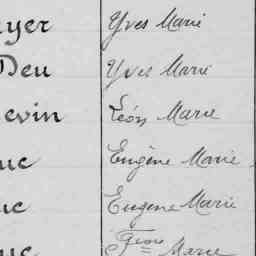 yer Yves Marie
Deu Yves Marie
evin Léon Marie
uc Eugène Marie
uc Eugene Marie
uc Marie